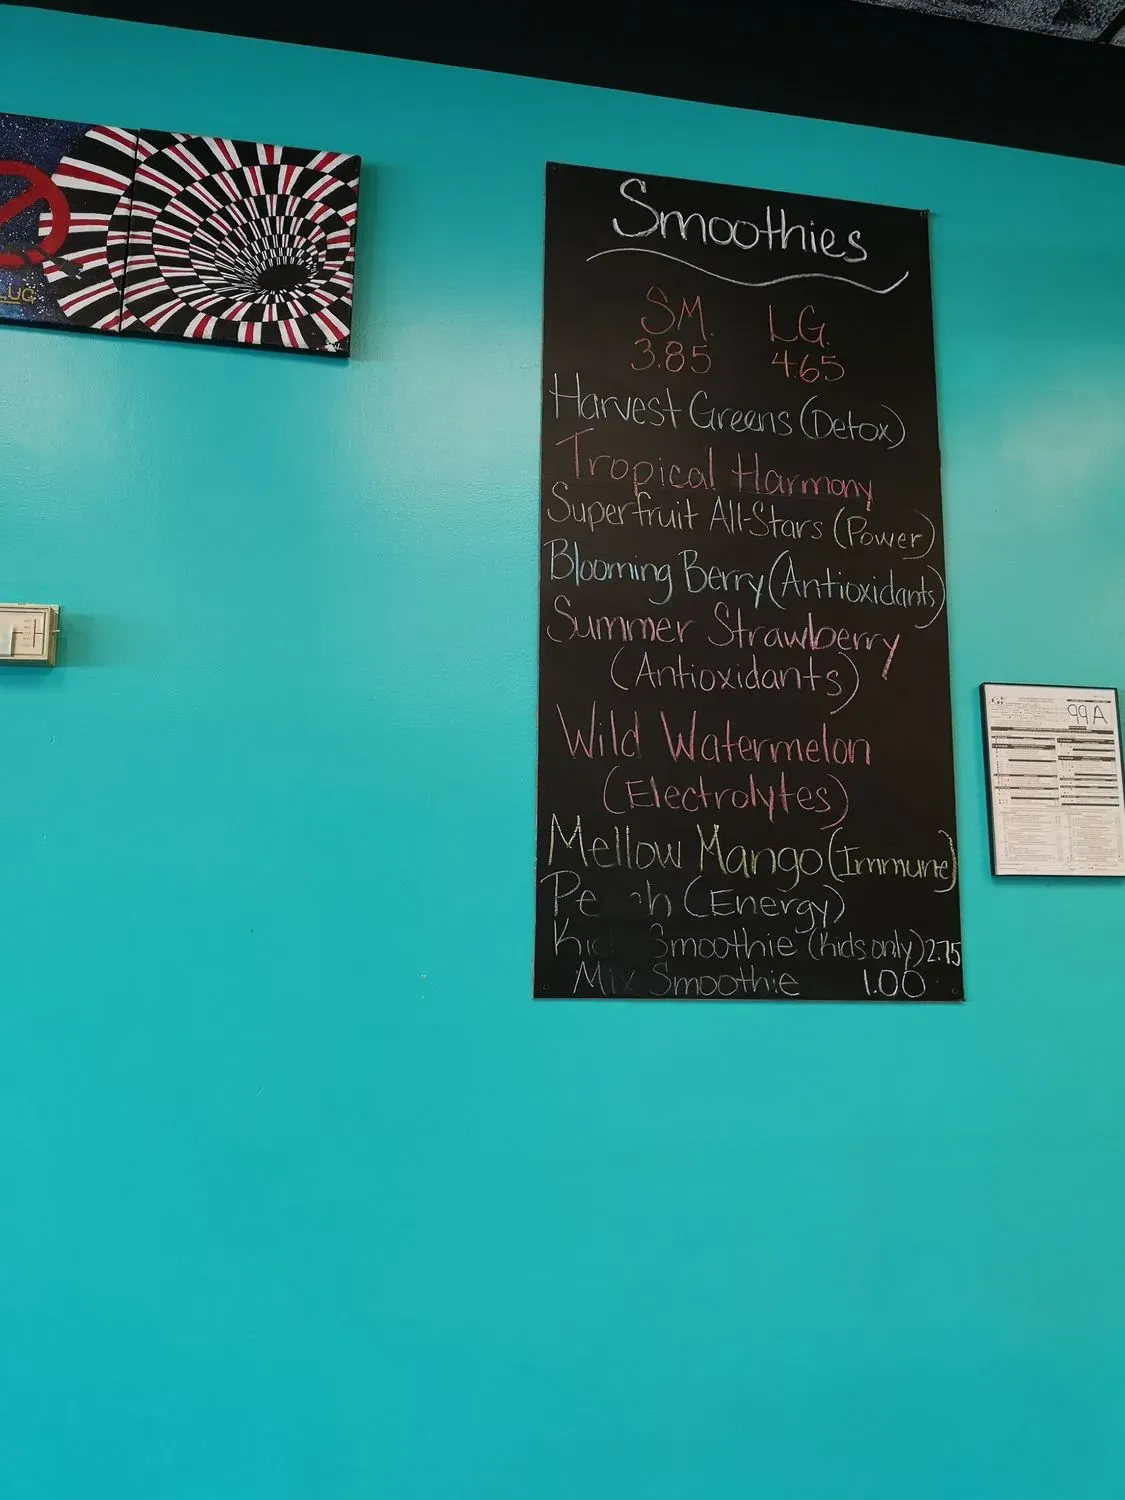 Smoothies
SM. LG.
3.85 4.65
Harvest Greens (Detox)
Tropical Harmony
Superfruit All-Stars (Power)
Blooming Berry (Antioxidants)
Summer Strawberry
(Antioxidants)
Wild Watermelon
(Electrolytes)
Mellow Mango (Immune)
Peach (Energy)
Smoothie (Kids only) 2.75
Mix Smoothie 1.00
99 A